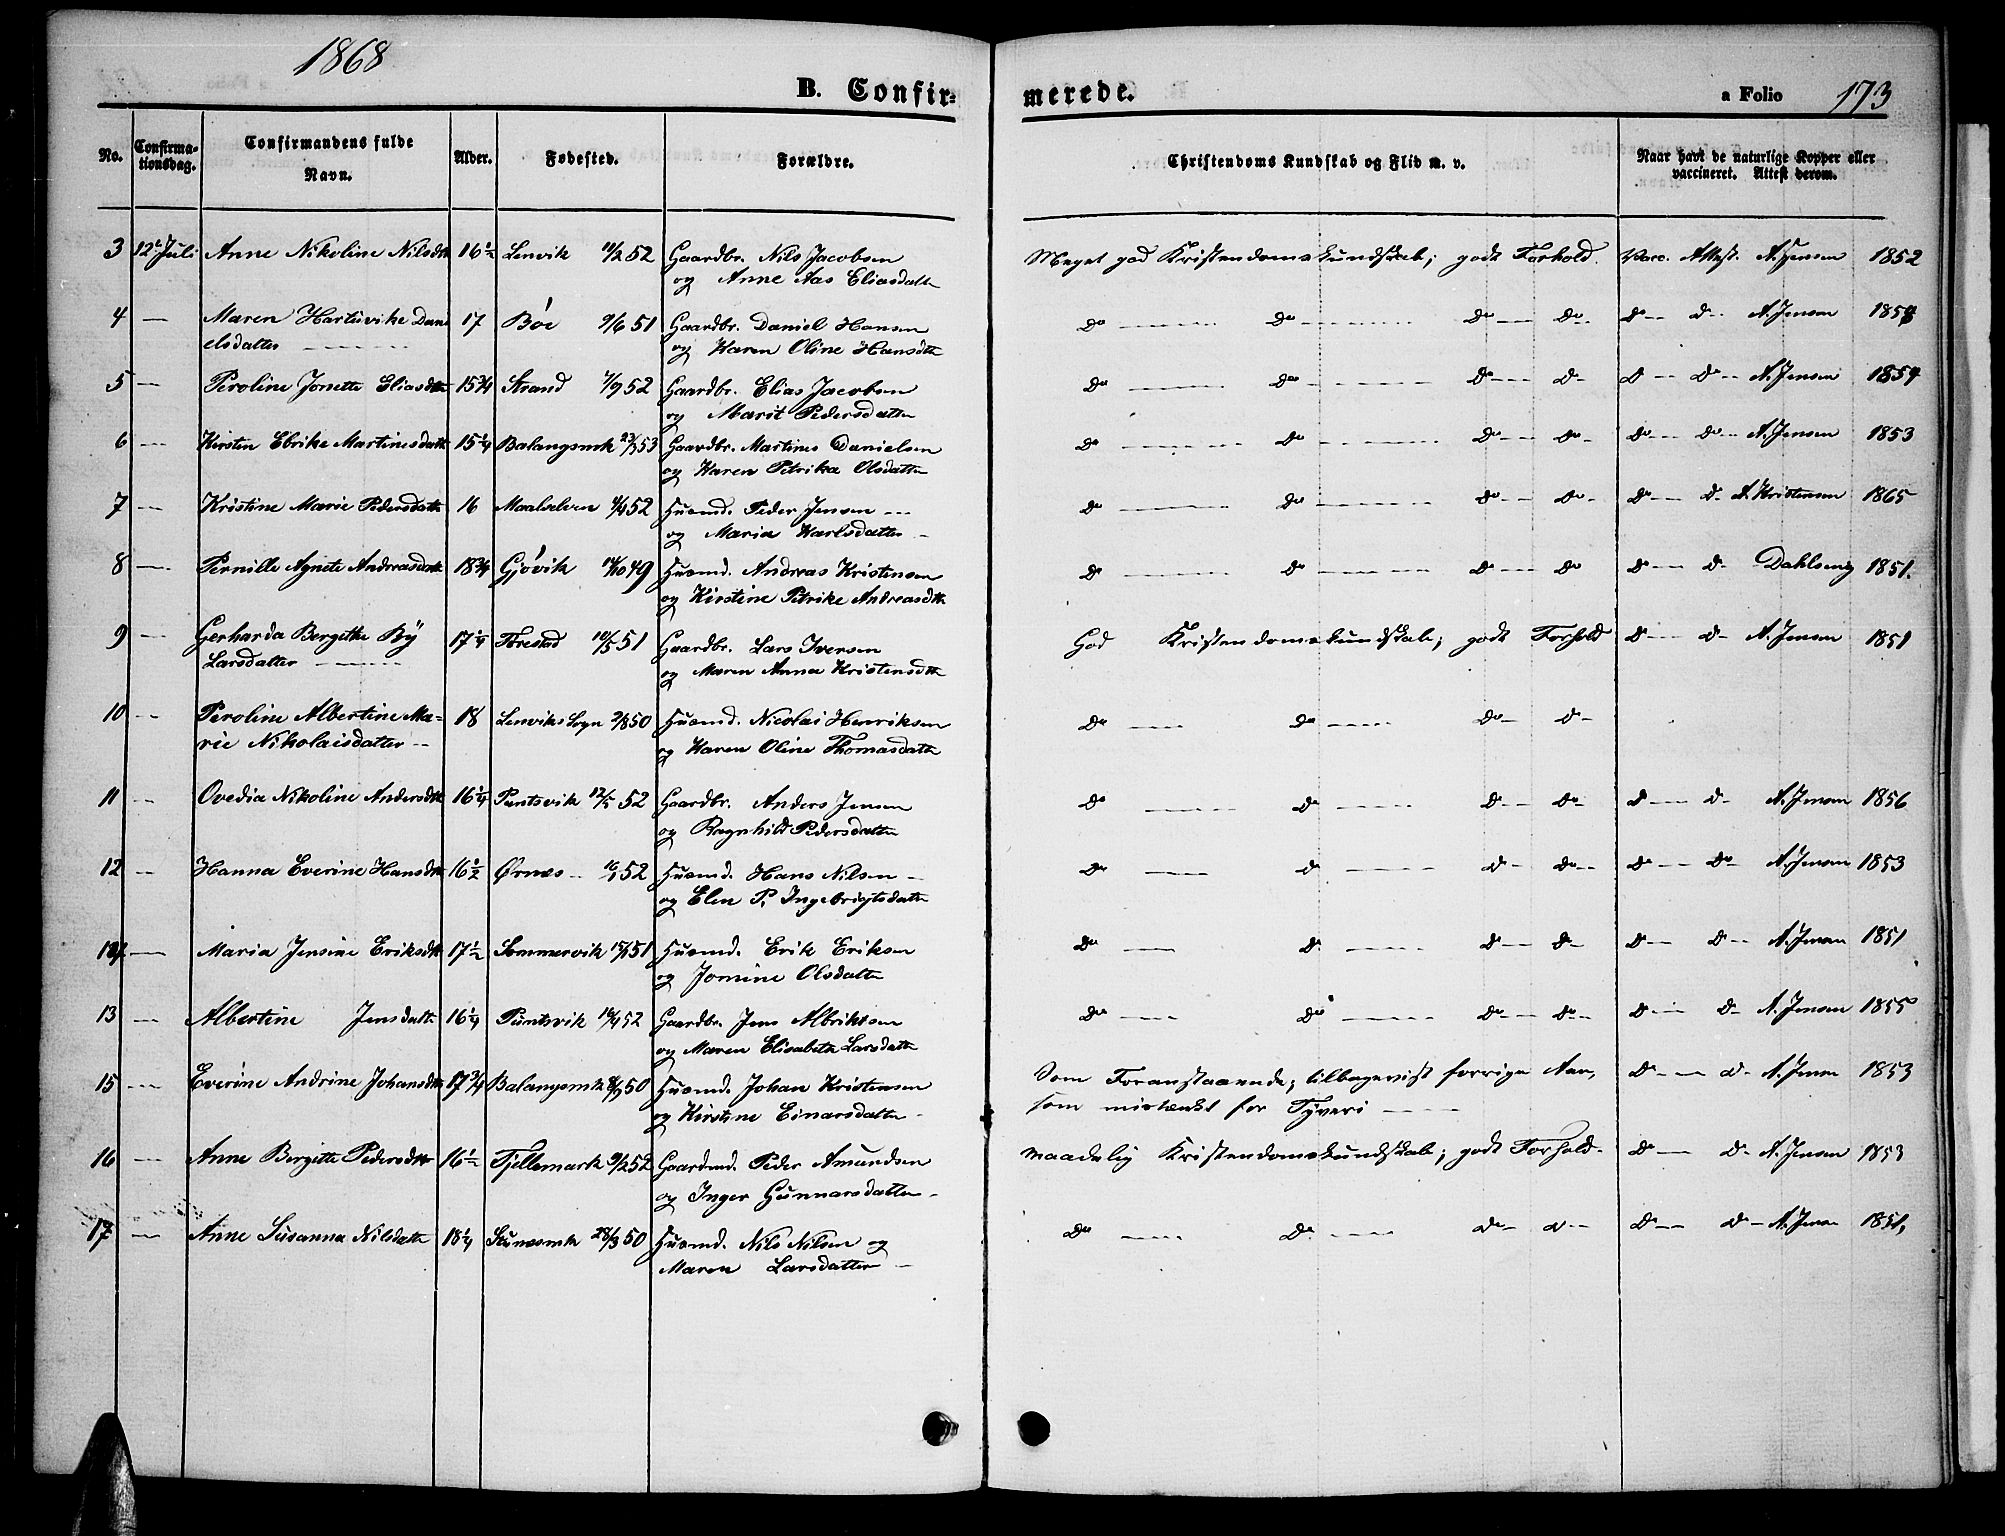 1868
B. Confirmerede.
a Folio 173
No. Confirmationsdag. Confirmandens fulde Navn. Alder. Fødested. Forældre. Christendoms Kundskab og Flid m. v. Naar havt de naturlige Kopper eller vaccineret. Attest derom.
3 12te Juli Anne Nikoline Nilsdtr 16½ Lenvik 11/2 52 Gaardbr. Nils Jacobsen Meget god Kristendomskundskab; godt Forhold. Vacc. Attest. A. Jensen 1852
og Anne Aas Eliasdatter
4 — Maren Hartuvike Dani 17 Bøe 9/6 51 Gaardbr. Daniel Hansen do — do — do — do — do — do — A. Jensen
elsdatter — og Karen Oline Hansdtr
5 — Peroline Jonette Eliasdtr 15¾ Strand 7/9 52 Gaardbr. Elias Jacobsen do — do — do — do — do — do — A. Jensen 1854
og Marit Pedersdatter
6 — Kirsten Ebrike Martinesdatter 15¼ Balangsmk 23/3 53 Gaardbr. Martines Danielsen do — do — do — do — do — do — A. Jensen 1853
og Karen Petrika Olsdatter
7 — Kristine Marie Pedersdatter 16 Maalselven 4/4 52 Husmd. Peder Jensen — do — do — do — do — do — do — A. Kristensen 1865
og Maria Karlsdatter —
8 — Pernille Agnete Andreasdatter 18¾ Gjøvik 14/10 49 Husmd. Andreas Kristensen do — do — do — do do — do — Dahlseng 1851.
og Kirstine Petrike Andreasdtr
9 — Gerharda Bergithe By 17¼ Forestad 10/5 51 Gaardbr. Lars Iversen God Kristendomskundskab; godt Forhold do — do — A. Jensen 1851
Larsdatter — og Maren Anna Kristensdtr
10 — Peroline Albertine Ma- 18 Lenviks Sogn 2/8 50 Husmd. Nicolai Henriksen do — do — do — do —
rie Nikolaisdatter — og Karen Oline Thomasdatter
11 — Ovedia Nikoline Andersdtr 16¼ Puntsvik 12/5 52 Gaardbr. Anders Jensen do — do — do — do — do — do — A. Jensen 1856
og Ragnhild Pedersdatter
12 — Hanna Everine Hansdtr 16½ Ørnes — 16/1 52 Husmd. Hans Nilsen — do — do — do — do — do — do — A. Jensen 1853
og Elen P. Ingebrigtsdatter
14 — Maria Jensine Eriksdtr 17½ Sommervik 15/1 51 Husmd. Erik Eriksen do — do — do — do — do — do — A. Jensen 1851
og Jomine Olsdatter
13 — Albertine Jensdatter 16¼ Puntsvik 16/4 52 Gaardbr. Jens Albriktsen do — do — do — do — do — do — A. Jensen 1855
og Maren Elisabeth Larsdatter
15 — Everine Andrine Johansdtr 17¾ Balangsmk 8/9 50 Husmd. Johan Kristensen Som Foranstaaende; tilbagevist forrige Aar, do — do — A. Jensen 1853
og Kirstine Einarsdatter — som mistænkt for Tyveri —
16 — Anne Bergitte Pedersdtr 16½ Fjellemark 9/2 52 Gaardmd. Peder Amundsen maadelig Kristendomskundskab; godt Forhold. do — do — A. Jensen 1853
og Inger Gunnarsdatter —
17 — Anne Susanna Nilsdatter 18¼ 28/3 50 Husmd. Nils Nilsen og do — do — do — do — do — do — A. Jensen 1851,
Maren Larsdatter —